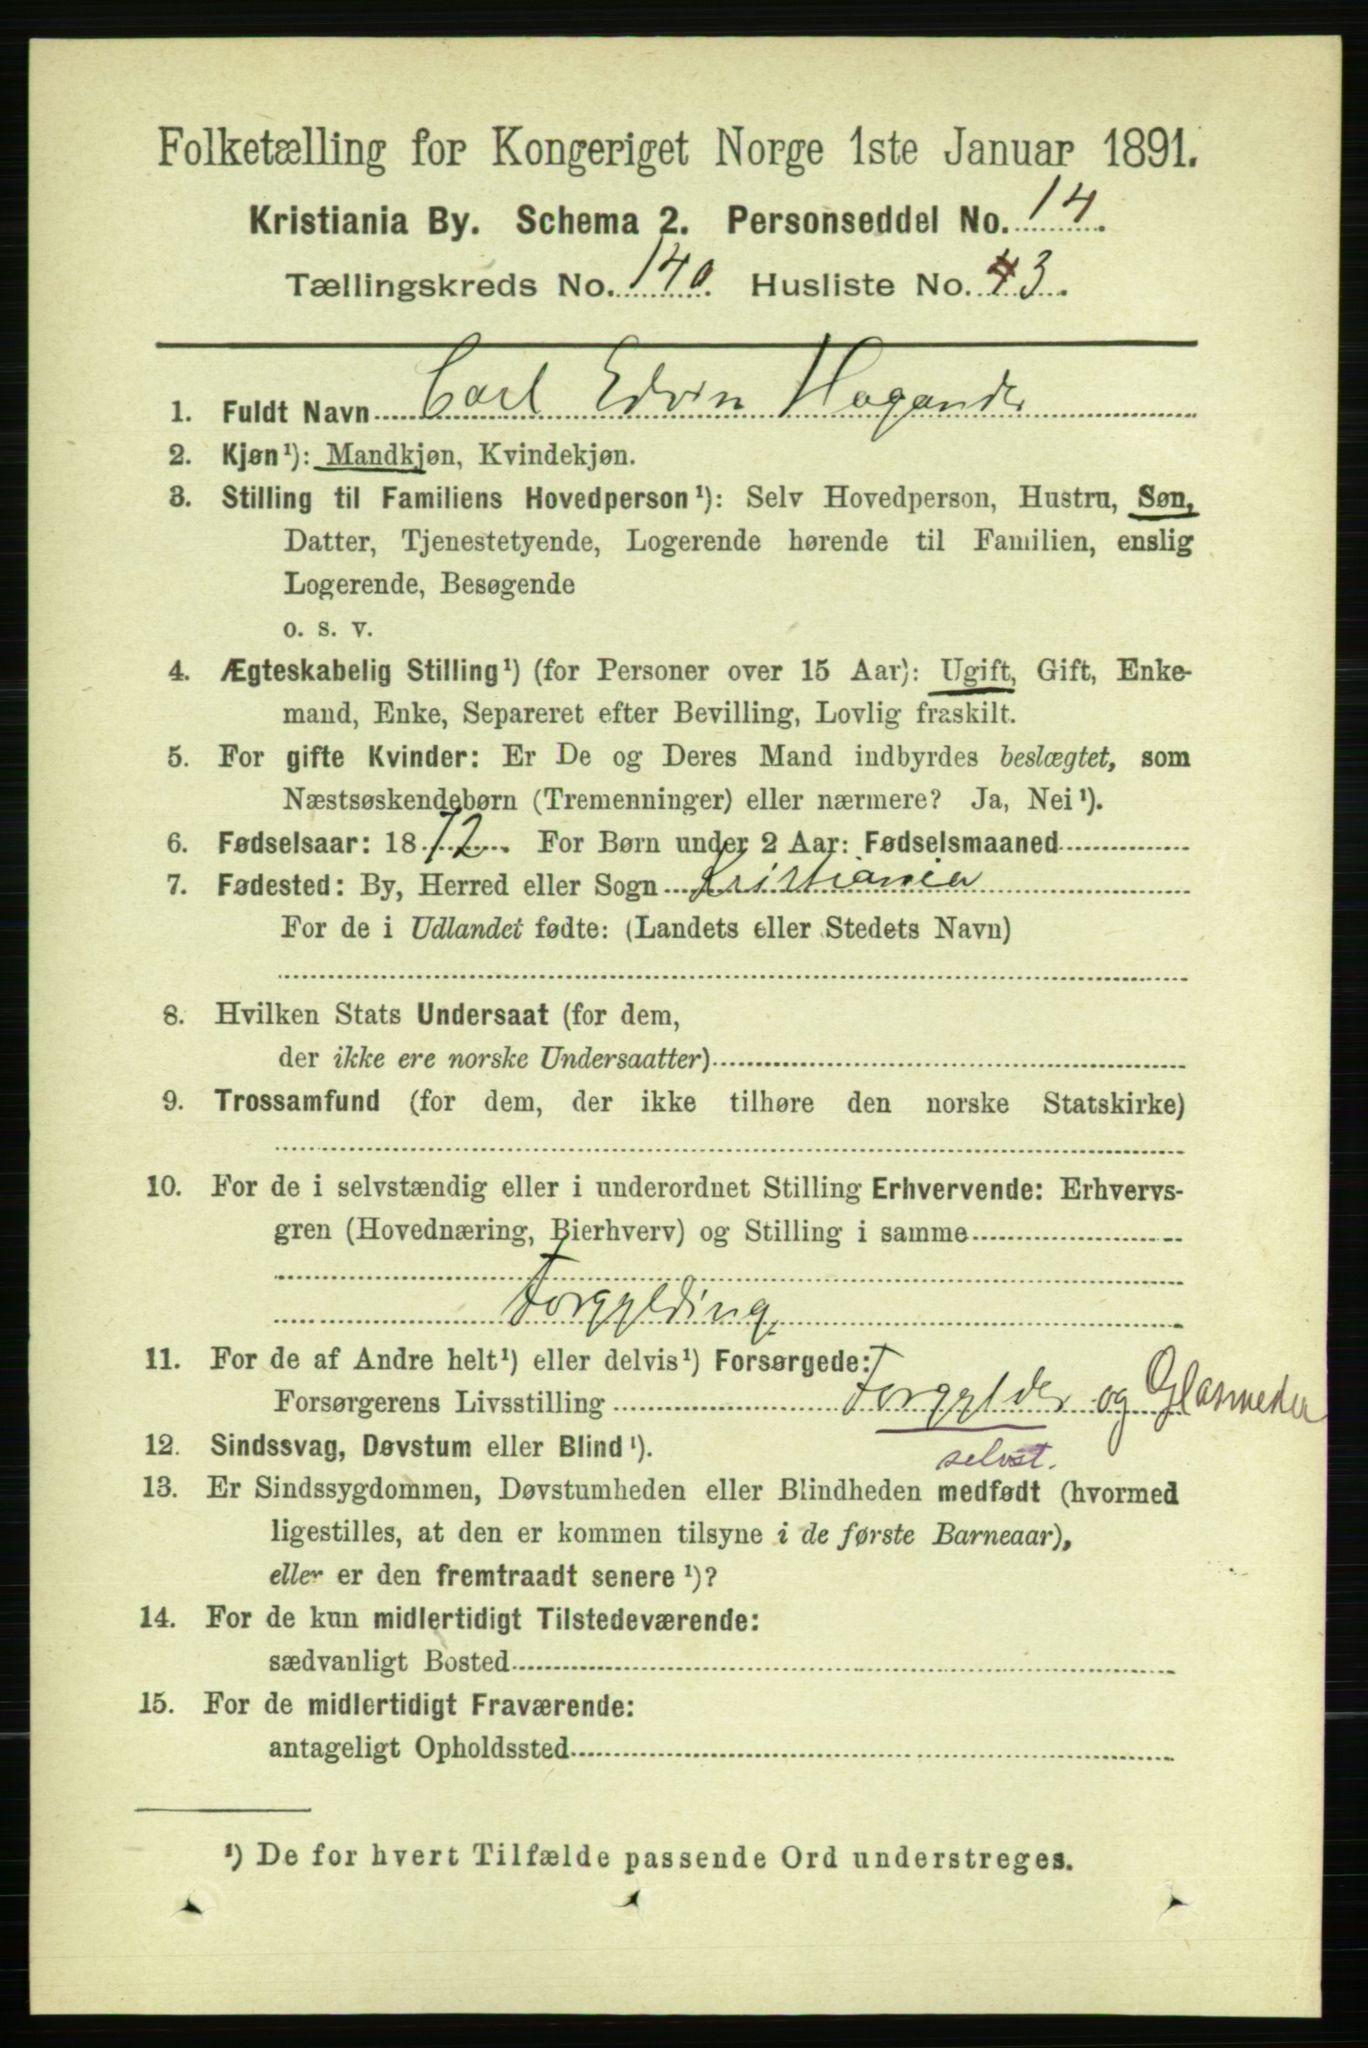 Folketælling for Kongeriget Norge 1ste Januar 1891.
Kristiania By. Schema 2. Personseddel No. 14.
Tællingskreds No. 140. Husliste No. 43.
1. Fuldt Navn Carl Edvin Hagander
2. Kjøn¹): Mandkjøn, Kvindekjøn.
3. Stilling til Familiens Hovedperson¹): Selv Hovedperson, Hustru, Søn,
Datter, Tjenestetyende, Logerende hørende til Familien, enslig
Logerende, Besøgende
o. s. v.
4. Ægteskabelig Stilling¹) (for Personer over 15 Aar): Ugift, Gift, Enke-
mand, Enke, Separeret efter Bevilling, Lovlig fraskilt.
5. For gifte Kvinder: Er De og Deres Mand indbyrdes beslægtet, som
Næstsøskendebørn (Tremenninger) eller nærmere? Ja, Nei¹).
6. Fødselsaar: 1872. For Børn under 2 Aar: Fødselsmaaned
7. Fødested: By, Herred eller Sogn Kristiania
For de i Udlandet fødte: (Landets eller Stedets Navn)
8. Hvilken Stats Undersaat (for dem,
der ikke ere norske Undersaatter)
9. Trossamfund (for dem, der ikke tilhøre den norske Statskirke)
10. For de i selvstændig eller i underordnet Stilling Erhvervende: Erhvervs-
gren (Hovednæring, Bierhverv) og Stilling i samme
Forgylding
11. For de af Andre helt¹) eller delvis¹) Forsørgede:
Forsørgerens Livsstilling Forgylder og Glasmester
12. Sindssvag, Døvstum eller Blind¹). selvst.
13. Er Sindssygdommen, Døvstumheden eller Blindheden medfødt (hvormed
ligestilles, at den er kommen tilsyne i de første Barneaar),
eller er den fremtraadt senere¹)?
14. For de kun midlertidigt Tilstedeværende:
sædvanligt Bosted
15. For de midlertidigt Fraværende:
antageligt Opholdssted
¹) De for hvert Tilfælde passende Ord understreges.